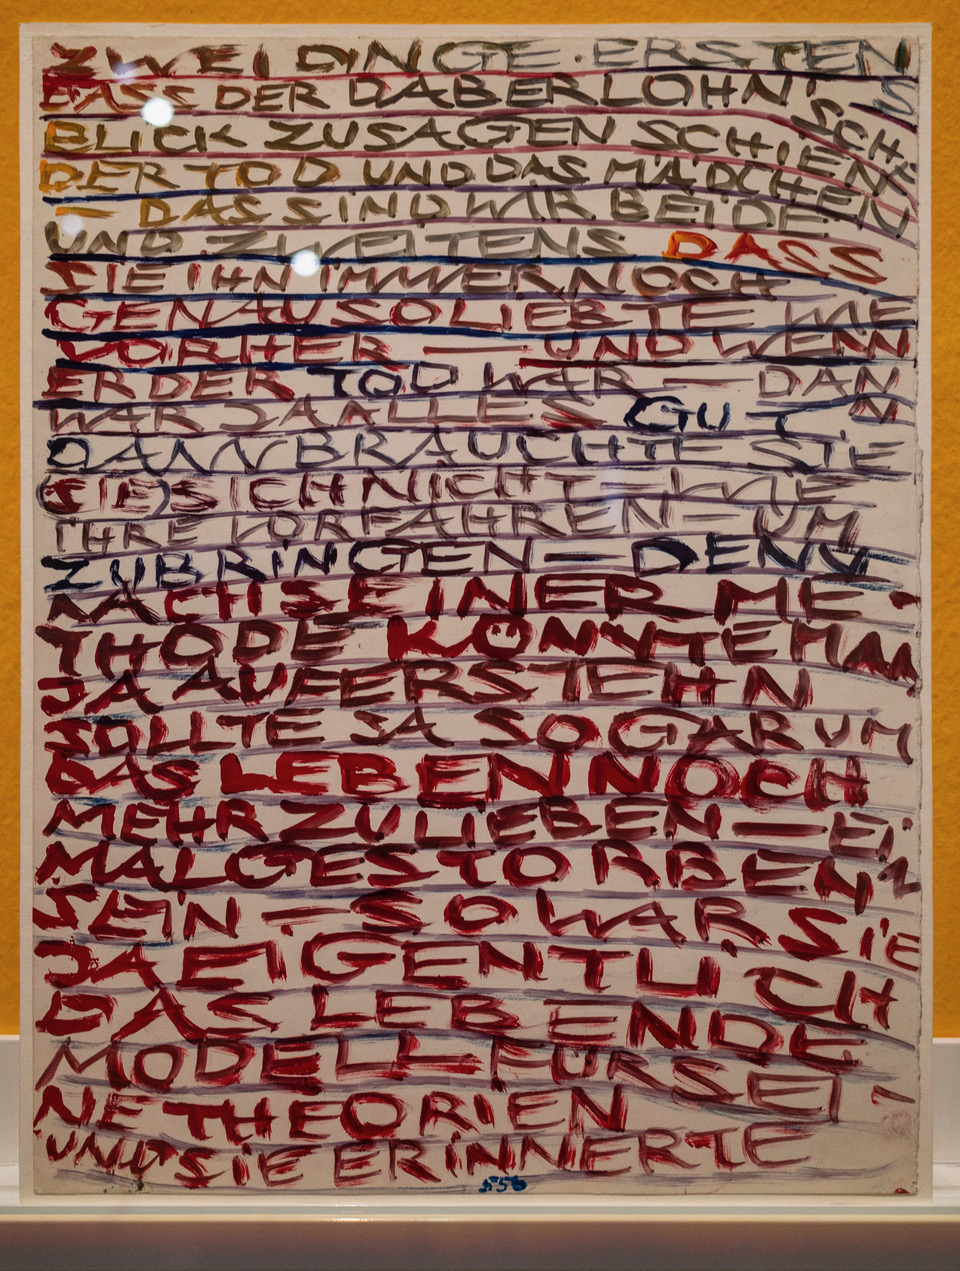 ZWEI DINGE. ERSTENS
DASS DER DABERLOHN SCH-
BLICK ZUSAGEN SCHIEN
DER TOD UND DAS MÄDCHEN
— DAS SIND WIR BEIDE.
UND ZWEITENS DASS
SIE IHN IMMER NOCH
GENAUSO LIEBTE WIE
VORHER — UND WENN
ER DER TOD WAR — DANN
WAR JA ALLES GUT
DANN BRAUCHTE SIE
(SIE) SICH NICHT — WIE
IHRE VORFAHREN — UM
ZUBRINGEN — DENN
NACH SEINER ME-
THODE KONNTE MAN
JA AUFERSTEHN
SOLLTE JA SOGAR UM
DAS LEBEN NOCH
MEHR ZU LIEBEN — EIN
MAL GESTORBEN
SEIN — SO WAR SIE
JA EIGENTLICH
DAS LEBENDE
MODELL FÜR SEI-
NE THEORIEN
UND SIE ERINNERTE
556